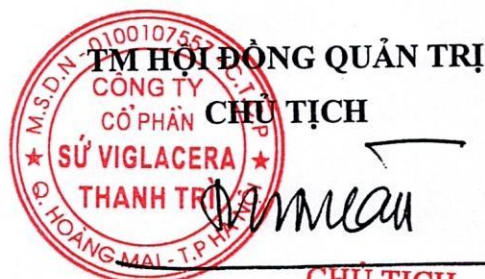 TM HỘI ĐỒNG QUẢN TRỊ
CHỦ TỊCH
M.S.D.N - 0100107557 - C.T.C.P
CÔNG TY
CỔ PHẦN
SỨ VIGLACERA
THANH TRÌ
Q. HOÀNG MAI - T.P HÀ NỘI
CHỦ TỊCH